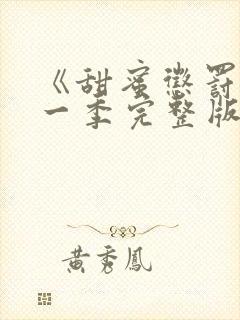 《甜蜜惩罚
一季完整版
黄秀凤